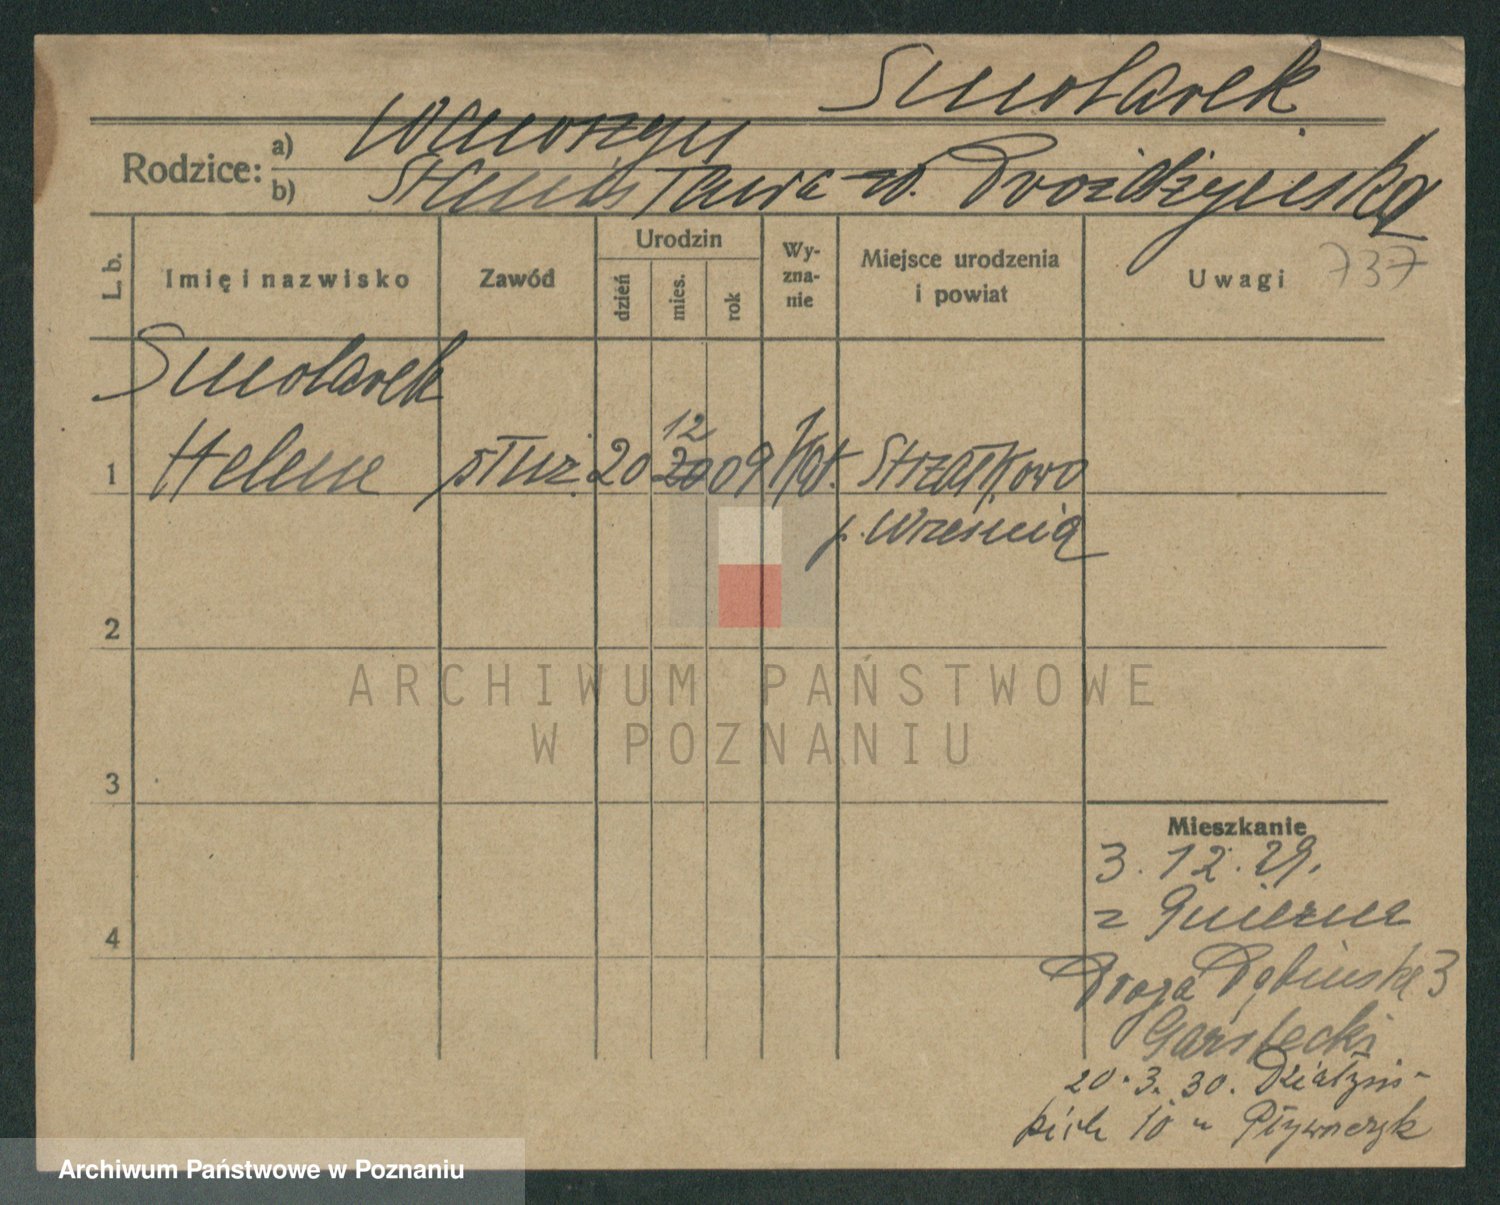 Smolarek
Rodzice: a) Wawrzyn
b) Stanisława z d. Drożdżyńska
L. b.
Imię i nazwisko
Zawód
Urodzin
dzień
mies.
rok
Wy-
zna-
nie
Miejsce urodzenia
i powiat
Uwagi
737
Smolarek
12
1 Helena służ. 20 20 09 kat. Strzałkowo
p. Września
2
3
4
Mieszkanie
3. 12. 29.
z Gniezna
Droga Dębińska 3
Garstecki
20. 3. 30. Działyńs-
kich 10 u Pływaczyk
ARCHIWUM PAŃSTWOWE
W POZNANIU
Archiwum Państwowe w Poznaniu